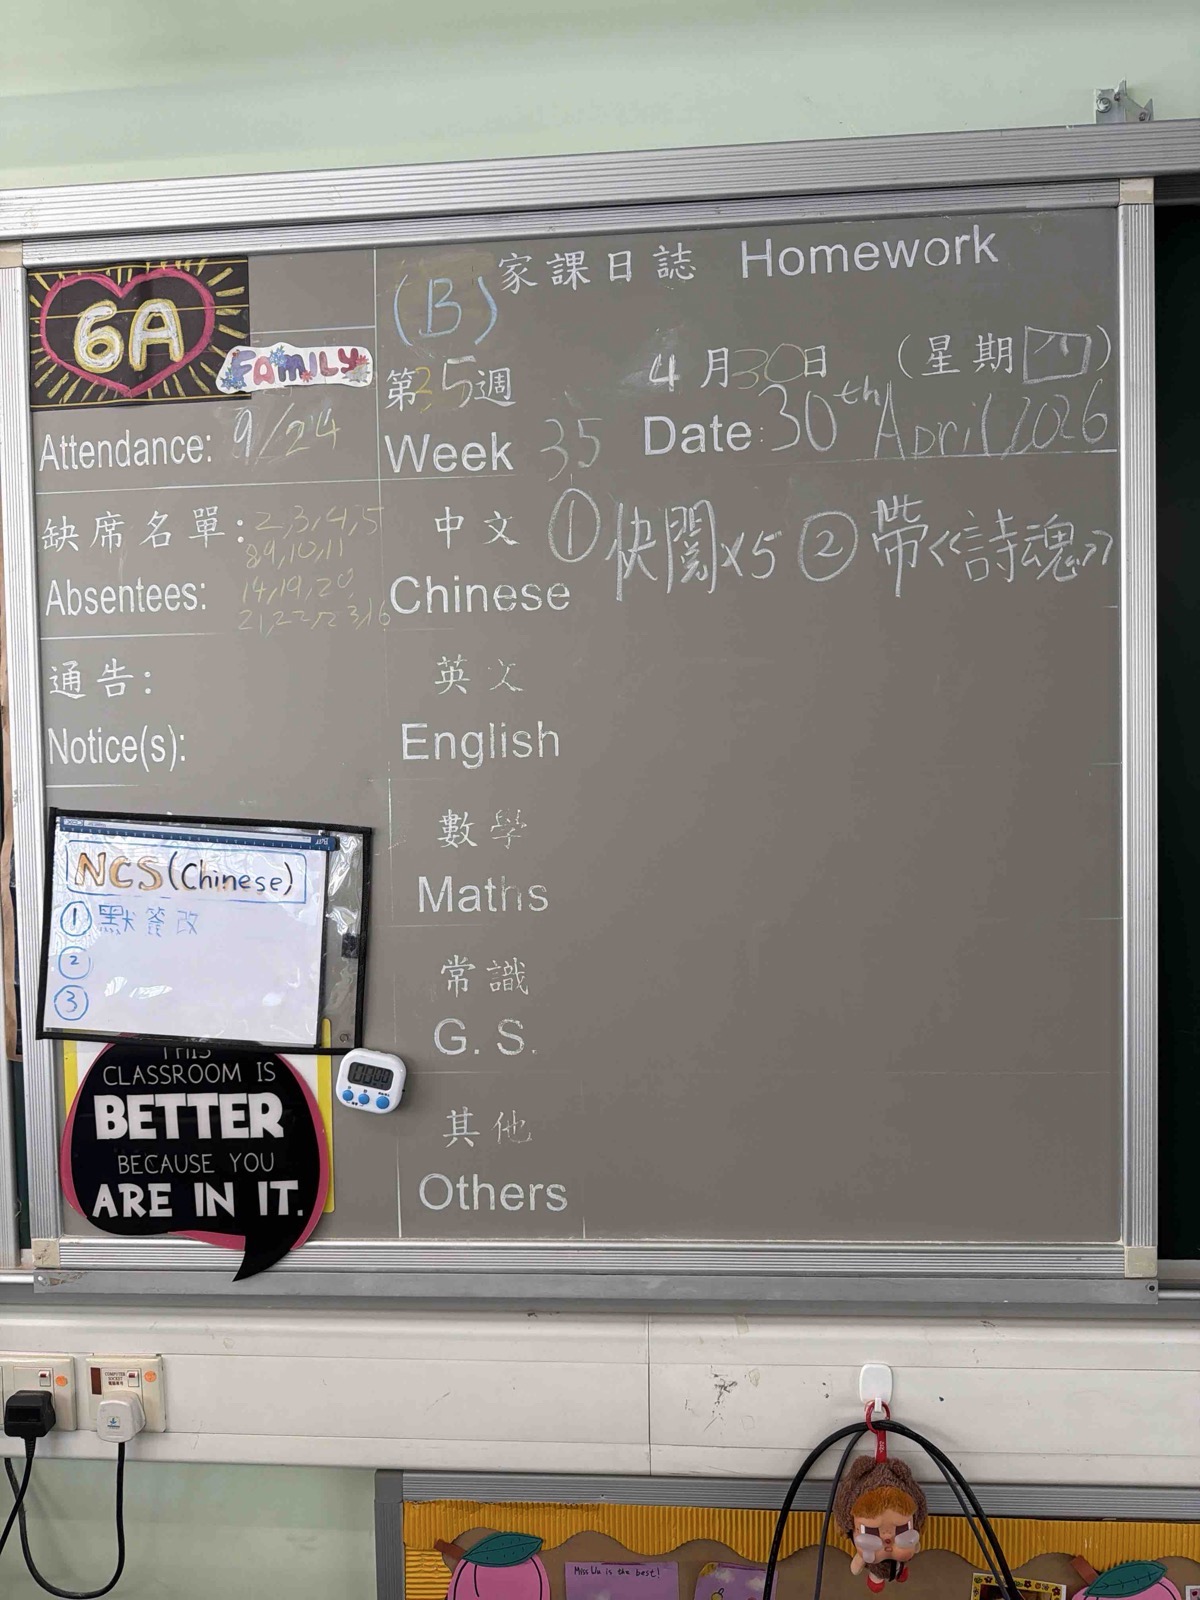 6A
FAMILY
(B)
家課日誌 Homework
第35週
4月30日 (星期四)
Attendance: 9/24
Week 35
Date: 30th April, 2026
缺席名單:
Absentees:
2,3,4,5
8,9,10,11
14,19,20,
21,22,23,16
中文
Chinese
① 快閱x5 ② 帶《詩魂》
通告:
Notice(s):
英文
English
數學
Maths
常識
G. S.
其他
Others
NCS (Chinese)
① 默簽改
②
③
THIS
CLASSROOM IS
BETTER
BECAUSE YOU
ARE IN IT.
COMPUTER
SOCKET
Miss Wu is the best!